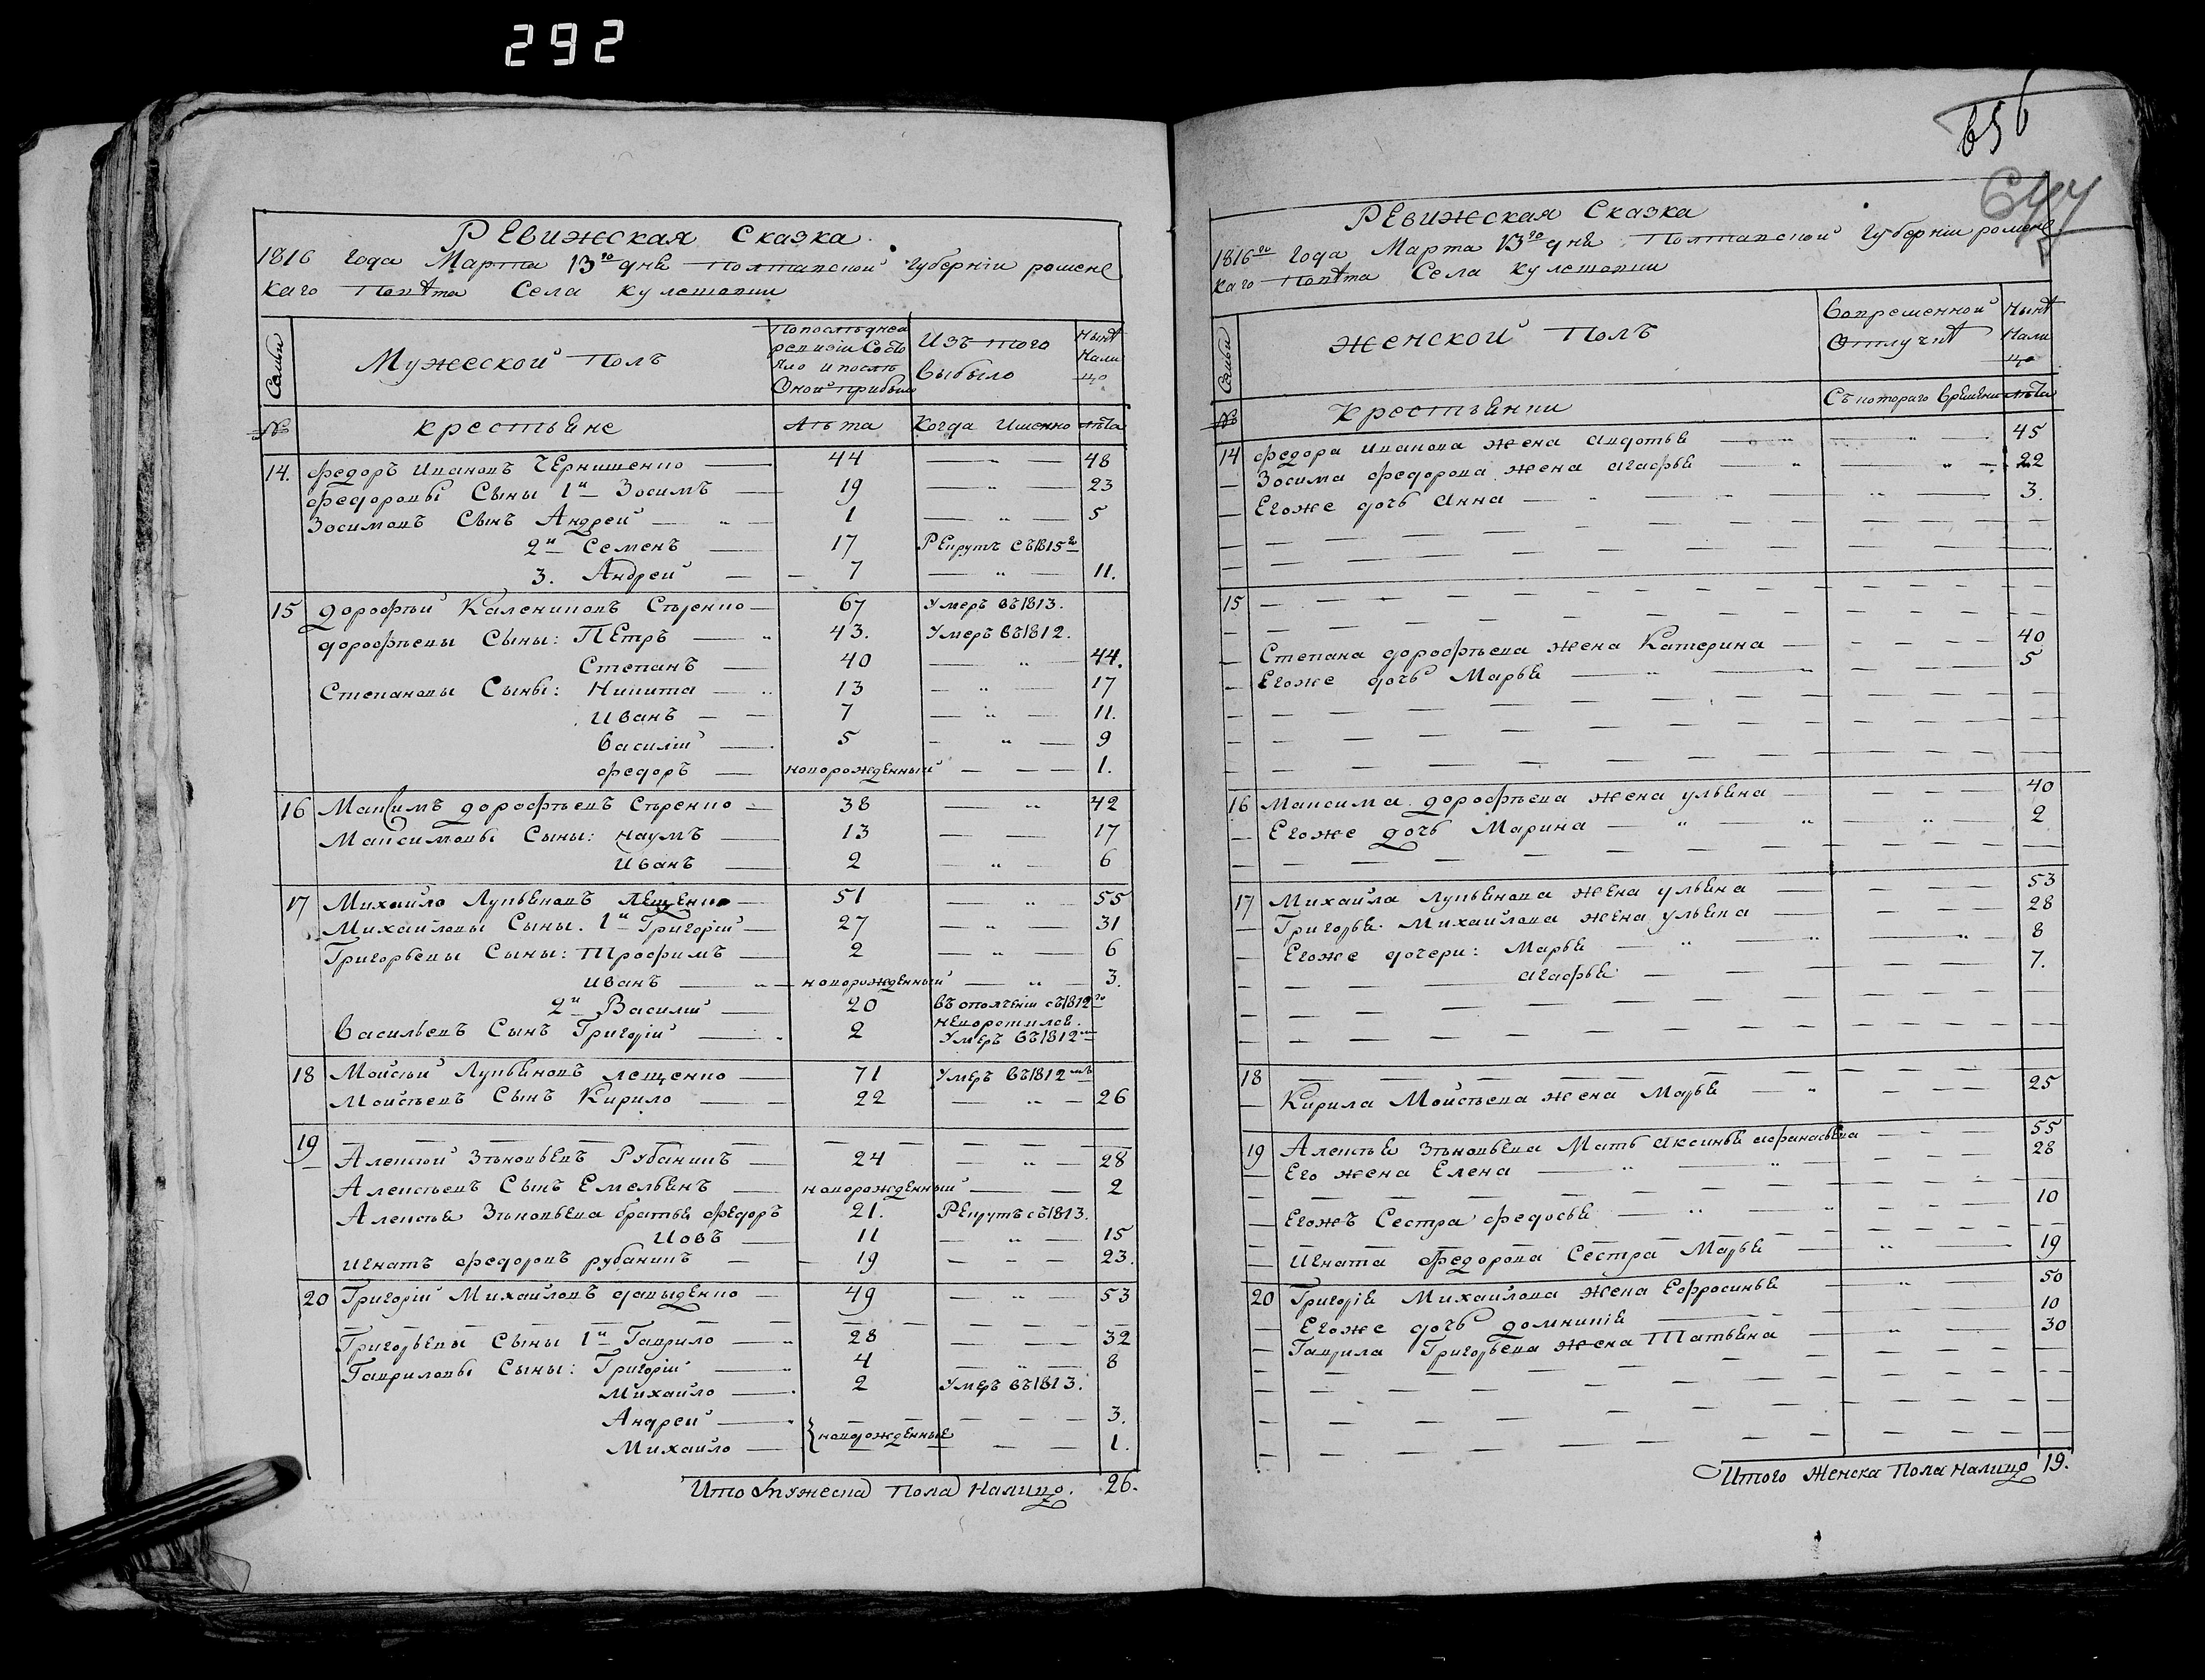 292
РЕвижская Сказка.
1816 года Марта 13го дня Полтавской губерніи роменс
каго Повѣта Села Кулешовки
Семьи
Мужеской Полъ
По последнеи ревизіи Состояло и послѣ Оной прибыло
Изъ того Выбыло
Нынѣ Налицо
№ крестьяне Лѣта Когда Именно лѣта
14. Федоръ Ивановъ ЧЕрнишенко 44 — „ — 48
Федоровы Сыны 1й Зосимъ 19 — „ — 23
Зосимовъ Сынъ Андрей 1 — „ — 5
2й Семенъ 17 РЕкрутъ съ 1815г
3. Андрей 7 — „ — 11.
15 Дорофѣй Калениковъ Стренко 67 Умеръ въ 1813.
Дорофѣевы Сыны: ПЕтръ 43. Умеръ въ 1812.
Степанъ 40 — „ — 44.
Степановы Сыны: Никита 13 — „ — 17
Иванъ 7 — „ — 11.
Василій 5 — „ — 9
Федоръ новорожденный — — — 1.
16 Максимъ Дорофѣевъ Стренко 38 — „ 42
Максимовы Сыны: Наумъ 13 — — 17
Иванъ 2 — „ — 6
17 Михайло Лукьяновъ ЛЕщенко 51 — „ — 55
Михайловы Сыны. 1й Григорій 27 — „ — 31
Григорьевы Сыны: Трофимъ 2 — „ — 6
Иванъ новорожденный — „ — 3.
2й Василій 20 въ ополченіи съ 1812го
неворотился.
Васильевъ Сынъ Григорій 2 Умеръ въ 1812м
18 Мойсѣй Лукьяновъ лещенко 71 Умеръ въ 1812мъ
Мойсѣевъ Сынъ Кирило 22 — „ — 26
19
Алексѣй Зѣновьевъ Рубаникъ 24 — „ — 28
Алексѣевъ Сынъ Емельянъ новорожденный — — 2
Алексѣя Зѣновьева братья Федоръ 21. РЕкрутъ съ 1813.
Иовъ 11 — „ — 15
Игнатъ Федоровъ рубаникъ 19 — — — 23.
20 Григорій Михайловъ давыденко 49 — „ — 53
Григорьевы Сыны 1й Гаврило 28 — — 32
Гавриловы Сыны: Григорій 4 — „ — 8
Михайло 2 Умеръ въ 1813.
Андрей — — — 3.
новорожденные
Михайло — — — 1.
Итого Мужеска Пола Налицо. 26.
656
644
РЕвижская Сказка
1816го года Марта 13го дня Полтавской губерніи роменс
каго Повѣта Села Кулешовки
Семьи
Женской Полъ
Вовременной Отлучкѣ
Нынѣ Налицо
№ Крестьянки Съ котораго Времени лѣта
14 Федора Иванова жена Авдотья 45
Зосима Федорова жена Агафья 22
Егоже дочь Анна 3.
15
Степана Дорофѣева жена Катерина 40
Егоже дочь Марья 5
16 Максима Дорофѣева жена ульяна 40
Егоже дочь Марина 2
17 Михайла Лукьянова жена ульяна 53
Григорья Михайлова жена ульяна 28
Егоже дочери: Марья 8
агафья 7.
18
Кирила Мойсѣева жена Марья 25
19 Алексѣя Зѣновьева Мать Аксинья афанасьева 55
Его жена Елена 28
Егожъ Сестра федосья 10
Игната Федорова Сестра Марья 19
20 Григорія Михайлова жена Ефросинья 50
Егоже дочь домникія 10
Гаврила Григорьева жена Татьяна 30
Итого Женска Пола налицо 19.